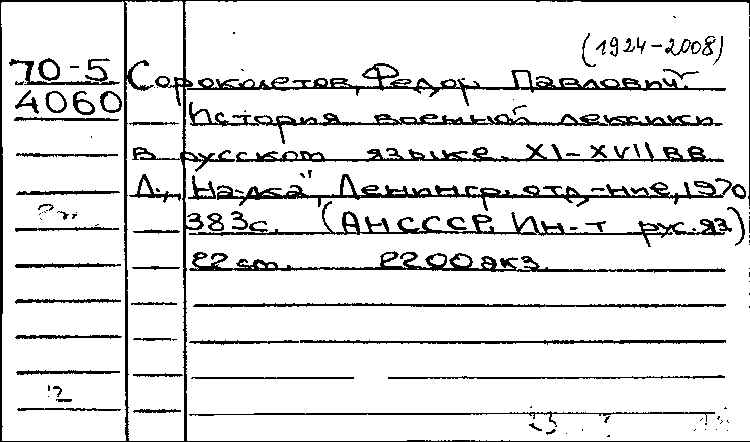 (1924-2008)
70-5 Сороколетов, Федор Павлович.
4060 История военной лексики
в русском языке. XI-XVII вв.
Л., "Наука", Ленингр. отд-ние, 1970
383с. (АН СССР. Ин-т рус.яз)
22 см. 2200 экз.
12
23